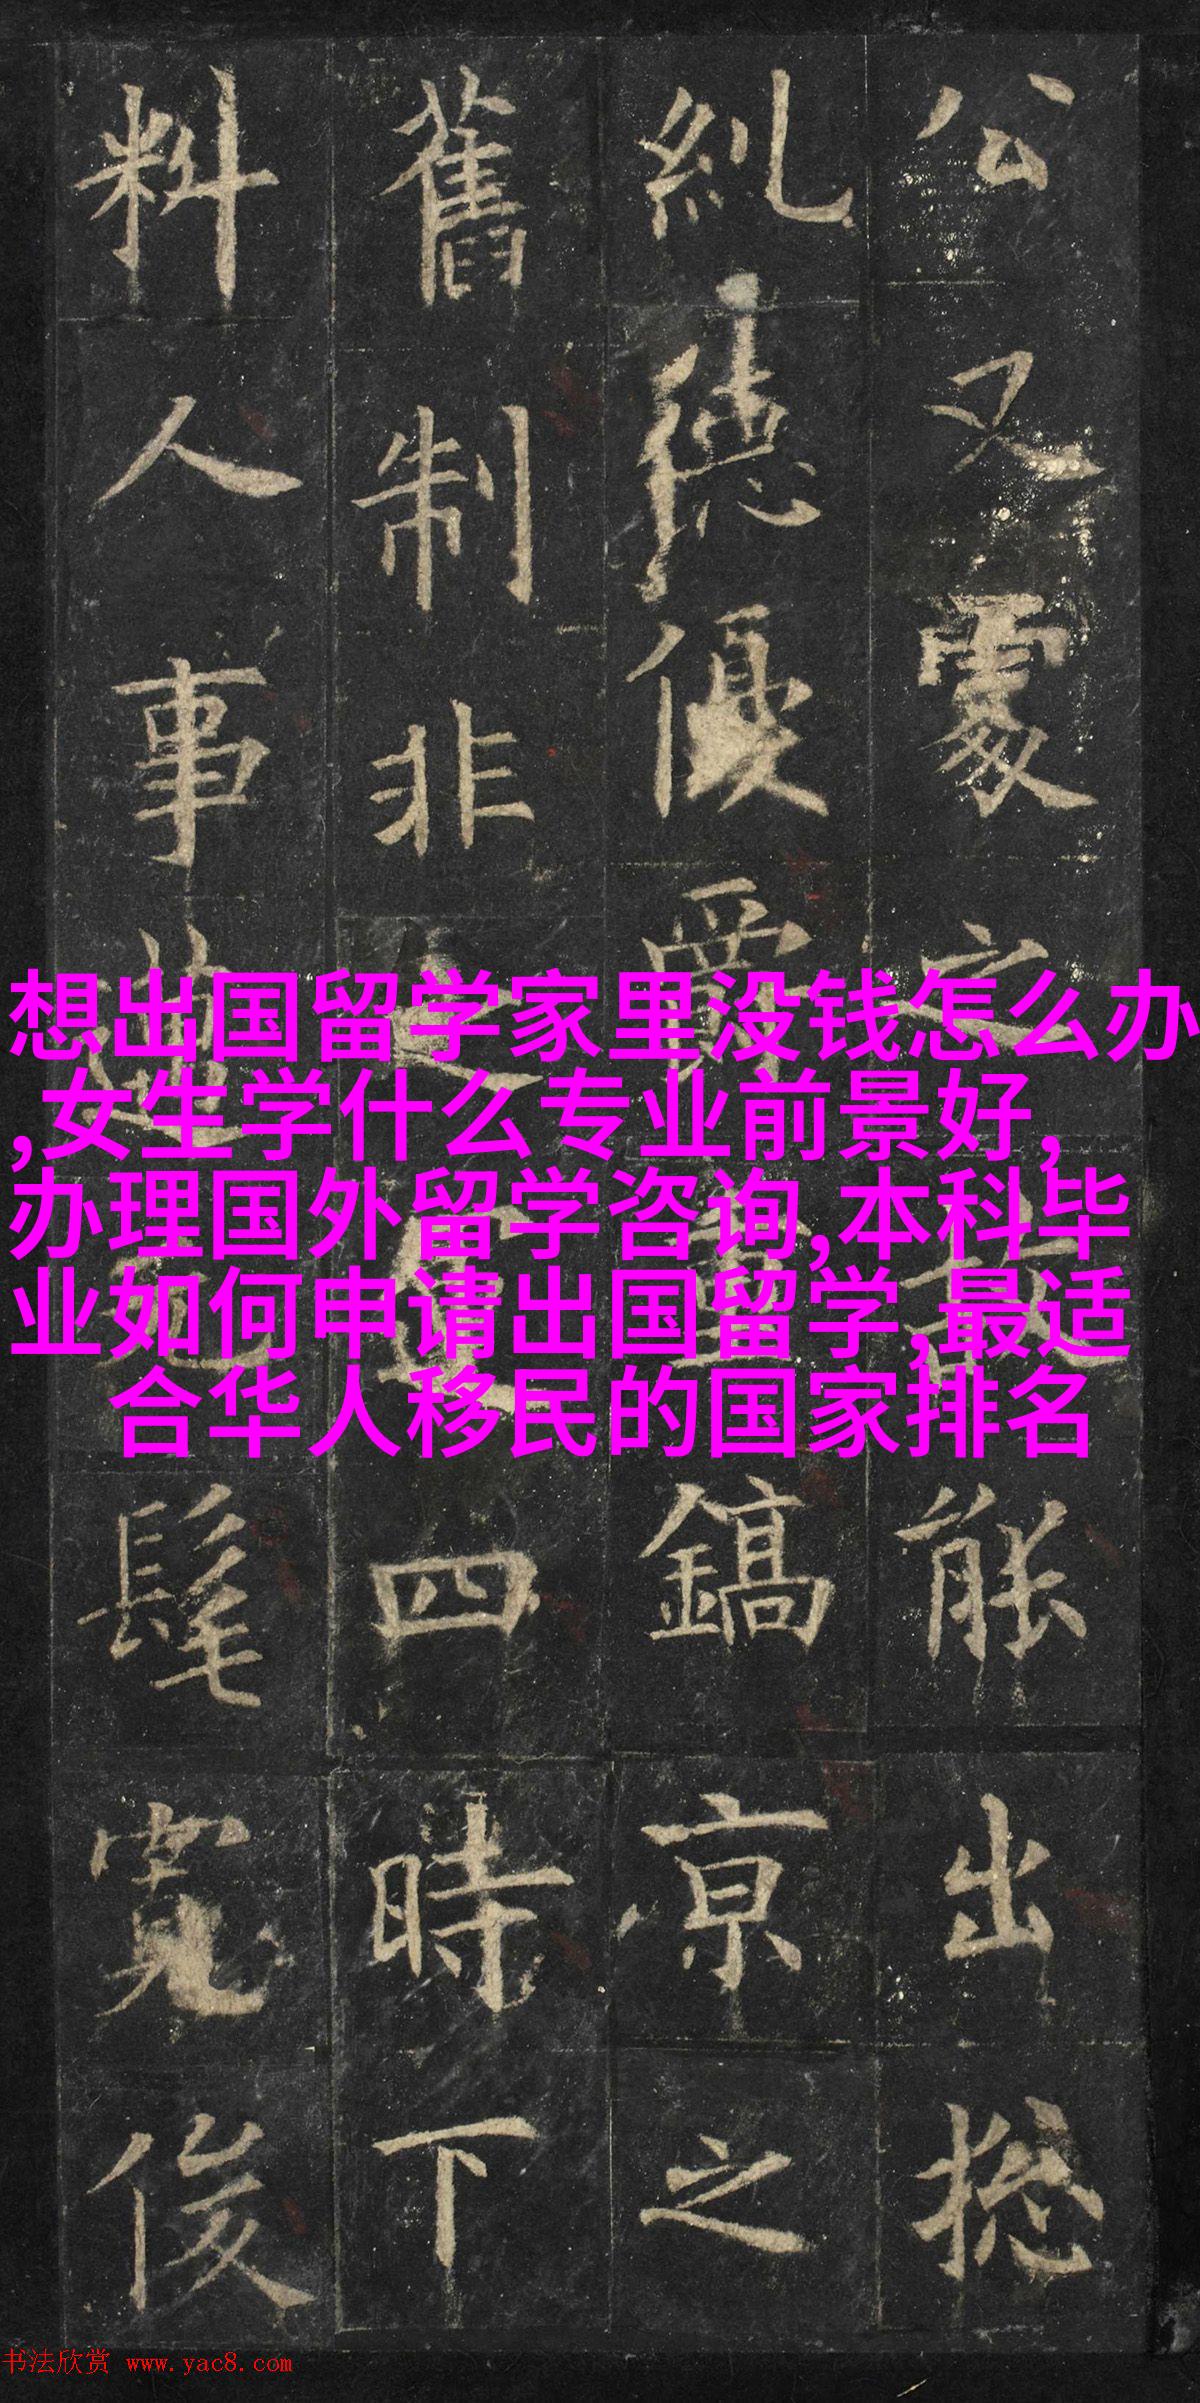 公又之能出揔
糺德優爵鎬京之
舊制非四時下
料人事髦俊
想出国留学家里没钱怎么办
,女生学什么专业前景好,
办理国外留学咨询,本科毕
业如何申请出国留学,最适
合华人移民的国家排名
书法欣赏 www.yac8.com